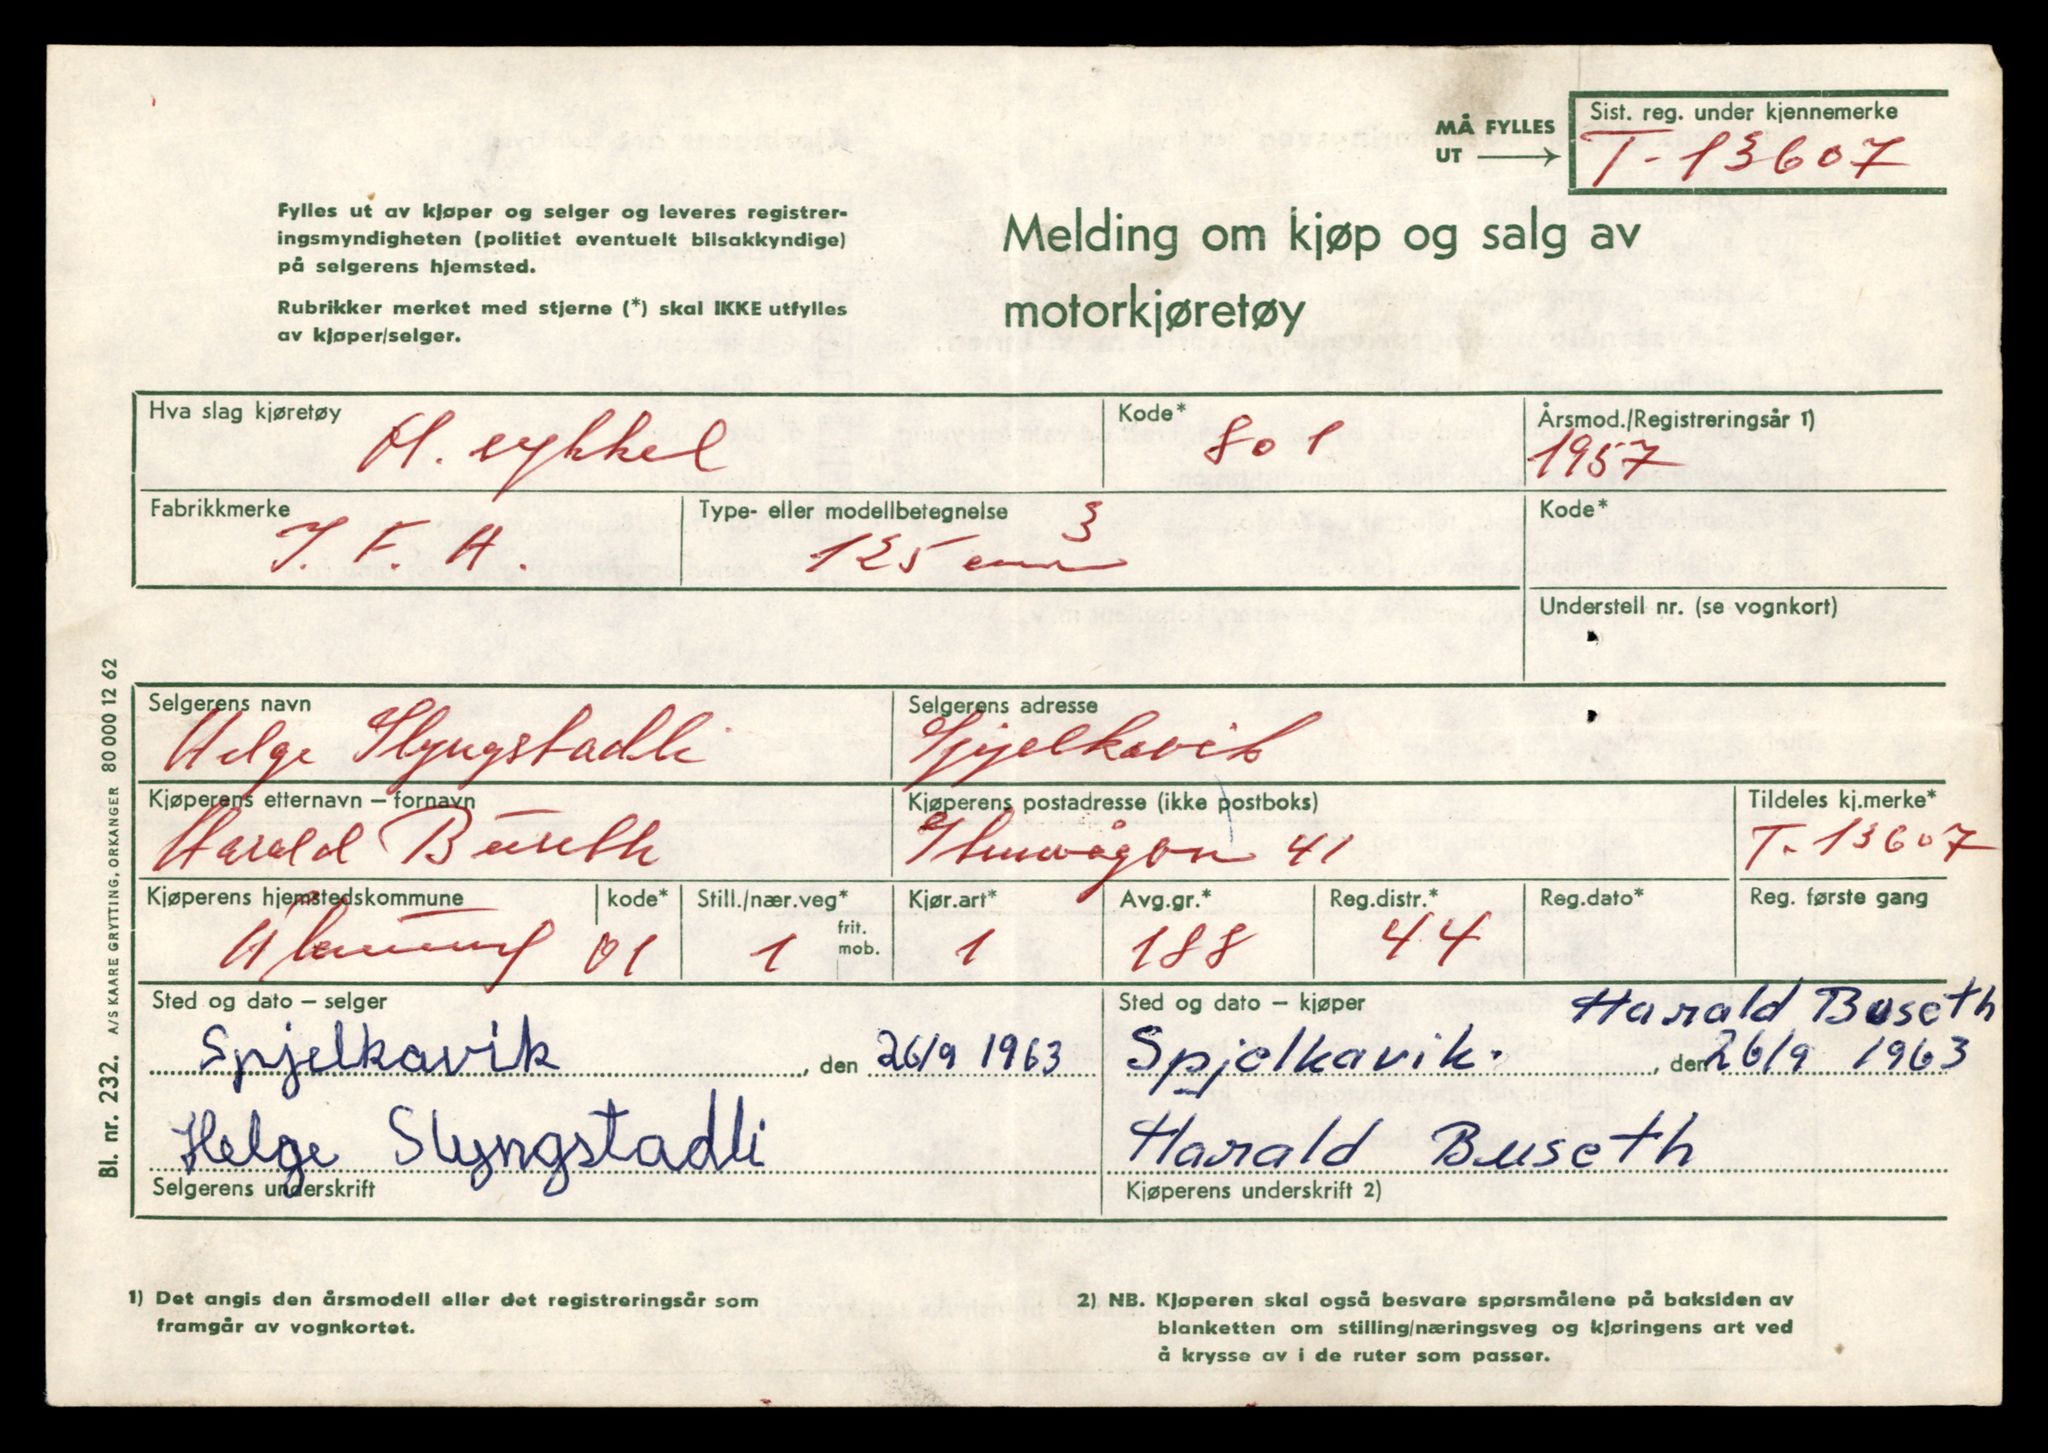 MÅ FYLLES
UT
Sist. reg. under kjennemerke
T-13607
Fylles ut av kjøper og selger og leveres registrer-
ingsmyndigheten (politiet eventuelt bilsakkyndige)
på selgerens hjemsted.
Rubrikker merket med stjerne (*) skal IKKE utfylles
av kjøper/selger.
Melding om kjøp og salg av
motorkjøretøy
Hva slag kjøretøy
M. sykkel
Kode*
801
Årsmod./Registreringsår 1)
1957
Fabrikkmerke
I. F. A.
Type- eller modellbetegnelse
125 cm3
Kode*
Understell nr. (se vognkort)
Selgerens navn
Helge Slyngstadli
Selgerens adresse
Spjelkavik
Kjøperens etternavn – fornavn
Harald Buseth
Kjøperens postadresse (ikke postboks)
41
Tildeles kj.merke*
T-13607
Kjøperens hjemstedskommune
kode*
01
Still./nær.veg*
1
frit.
mob.
Kjør.art*
1
Avg.gr.*
188
Reg.distr.*
44
Reg.dato*
Reg. første gang
Sted og dato – selger
Spjelkavik, den 26/9 1963
Helge Slyngstadli
Selgerens underskrift
Sted og dato – kjøper
Harald Buseth
Spjelkavik., den 26/9 1963
Harald Buseth
Kjøperens underskrift 2)
1) Det angis den årsmodell eller det registreringsår som
framgår av vognkortet.
2) NB. Kjøperen skal også besvare spørsmålene på baksiden av
blanketten om stilling/næringsveg og kjøringens art ved
å krysse av i de ruter som passer.
Bl. nr. 232. A/S KAARE GRYTTING, ORKANGER 80 000 12 62